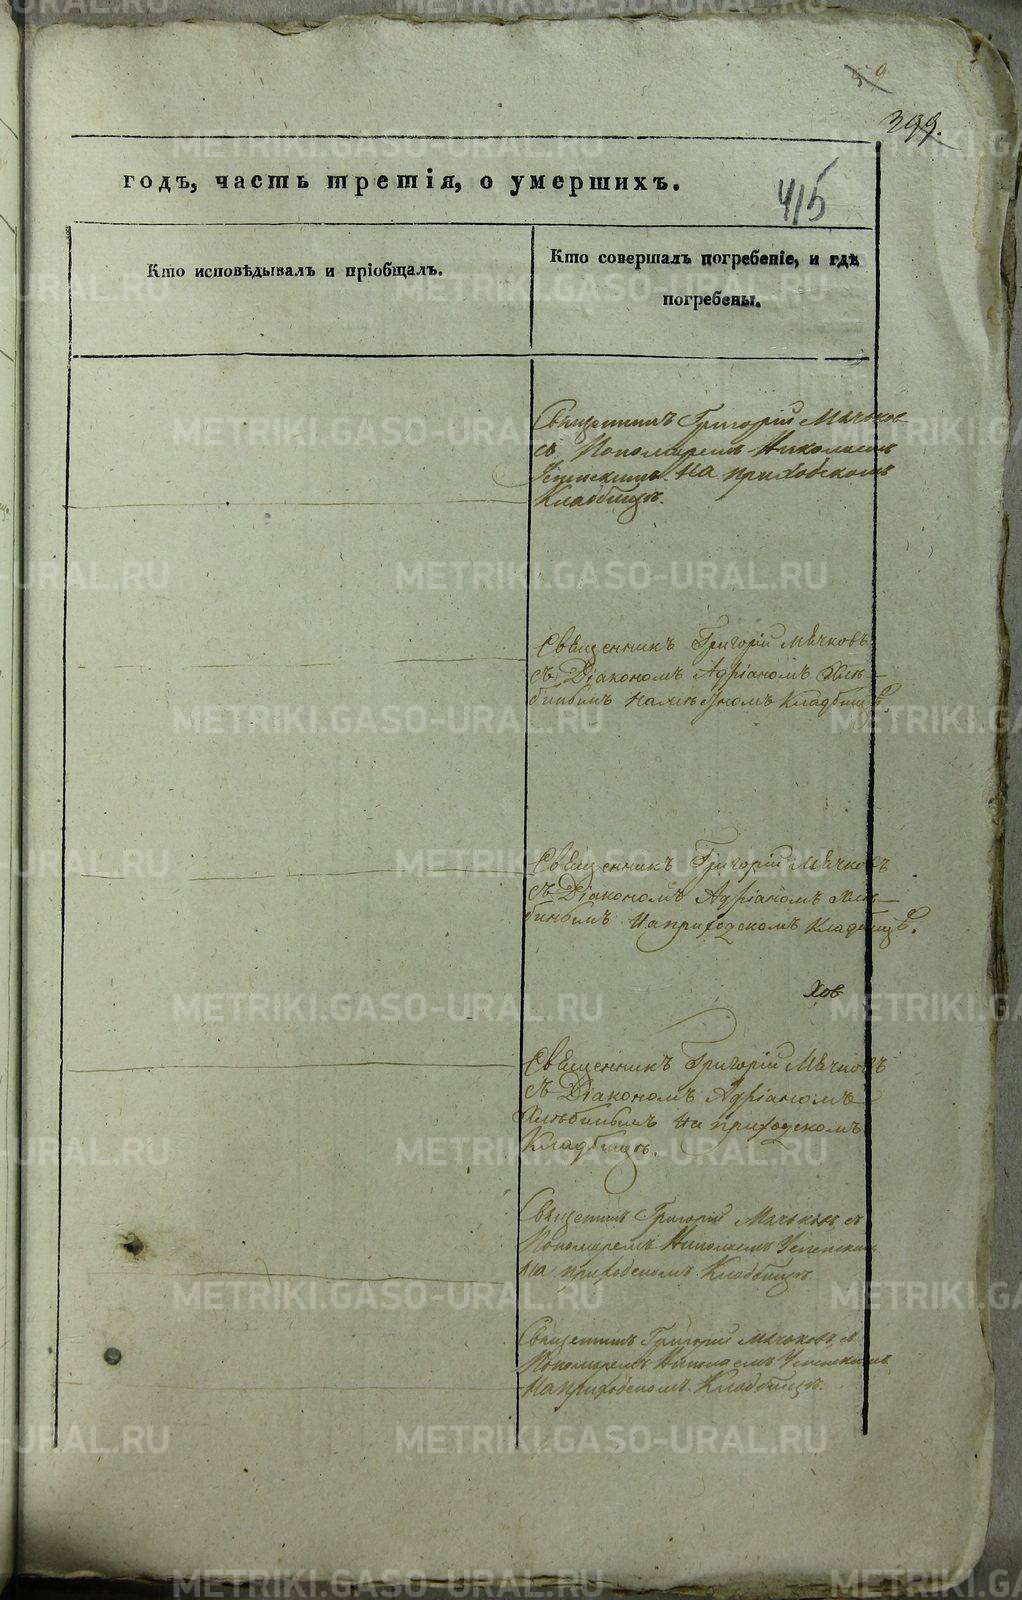 399.
415
годъ, часть третія, о умершихъ.
Кто исповѣдывалъ и пріобщалъ.
Кто совершалъ погребеніе, и гдѣ
погребены.
Священникъ Григорій Мячков
съ Пономаремъ Николаемъ
Успенскимъ. На приходскомъ
Кладбищѣ.
Священникъ Григорій Мячковъ
съ Діакономъ Адріаномъ Хлѣ-
бинымъ на приходскомъ Кладбищѣ.
Священникъ Григорій Мячковъ
съ Діакономъ Адріаномъ Хлѣ-
бинымъ на приходскомъ Кладбищѣ.
Хов
Священникъ Григорій Мячковъ
съ Діакономъ Адріаномъ
Хлѣбинымъ на приходскомъ
Кладбищѣ.
Священникъ Григорій Мячковъ, съ
Пономаремъ Николаемъ Успенским
на приходскомъ. Кладбищѣ
Священникъ Григорій Мячковъ, съ
Пономаремъ Николаемъ Успенскимъ
На приходскомъ. Кладбищѣ.
METRIKI.GASO-URAL.RU